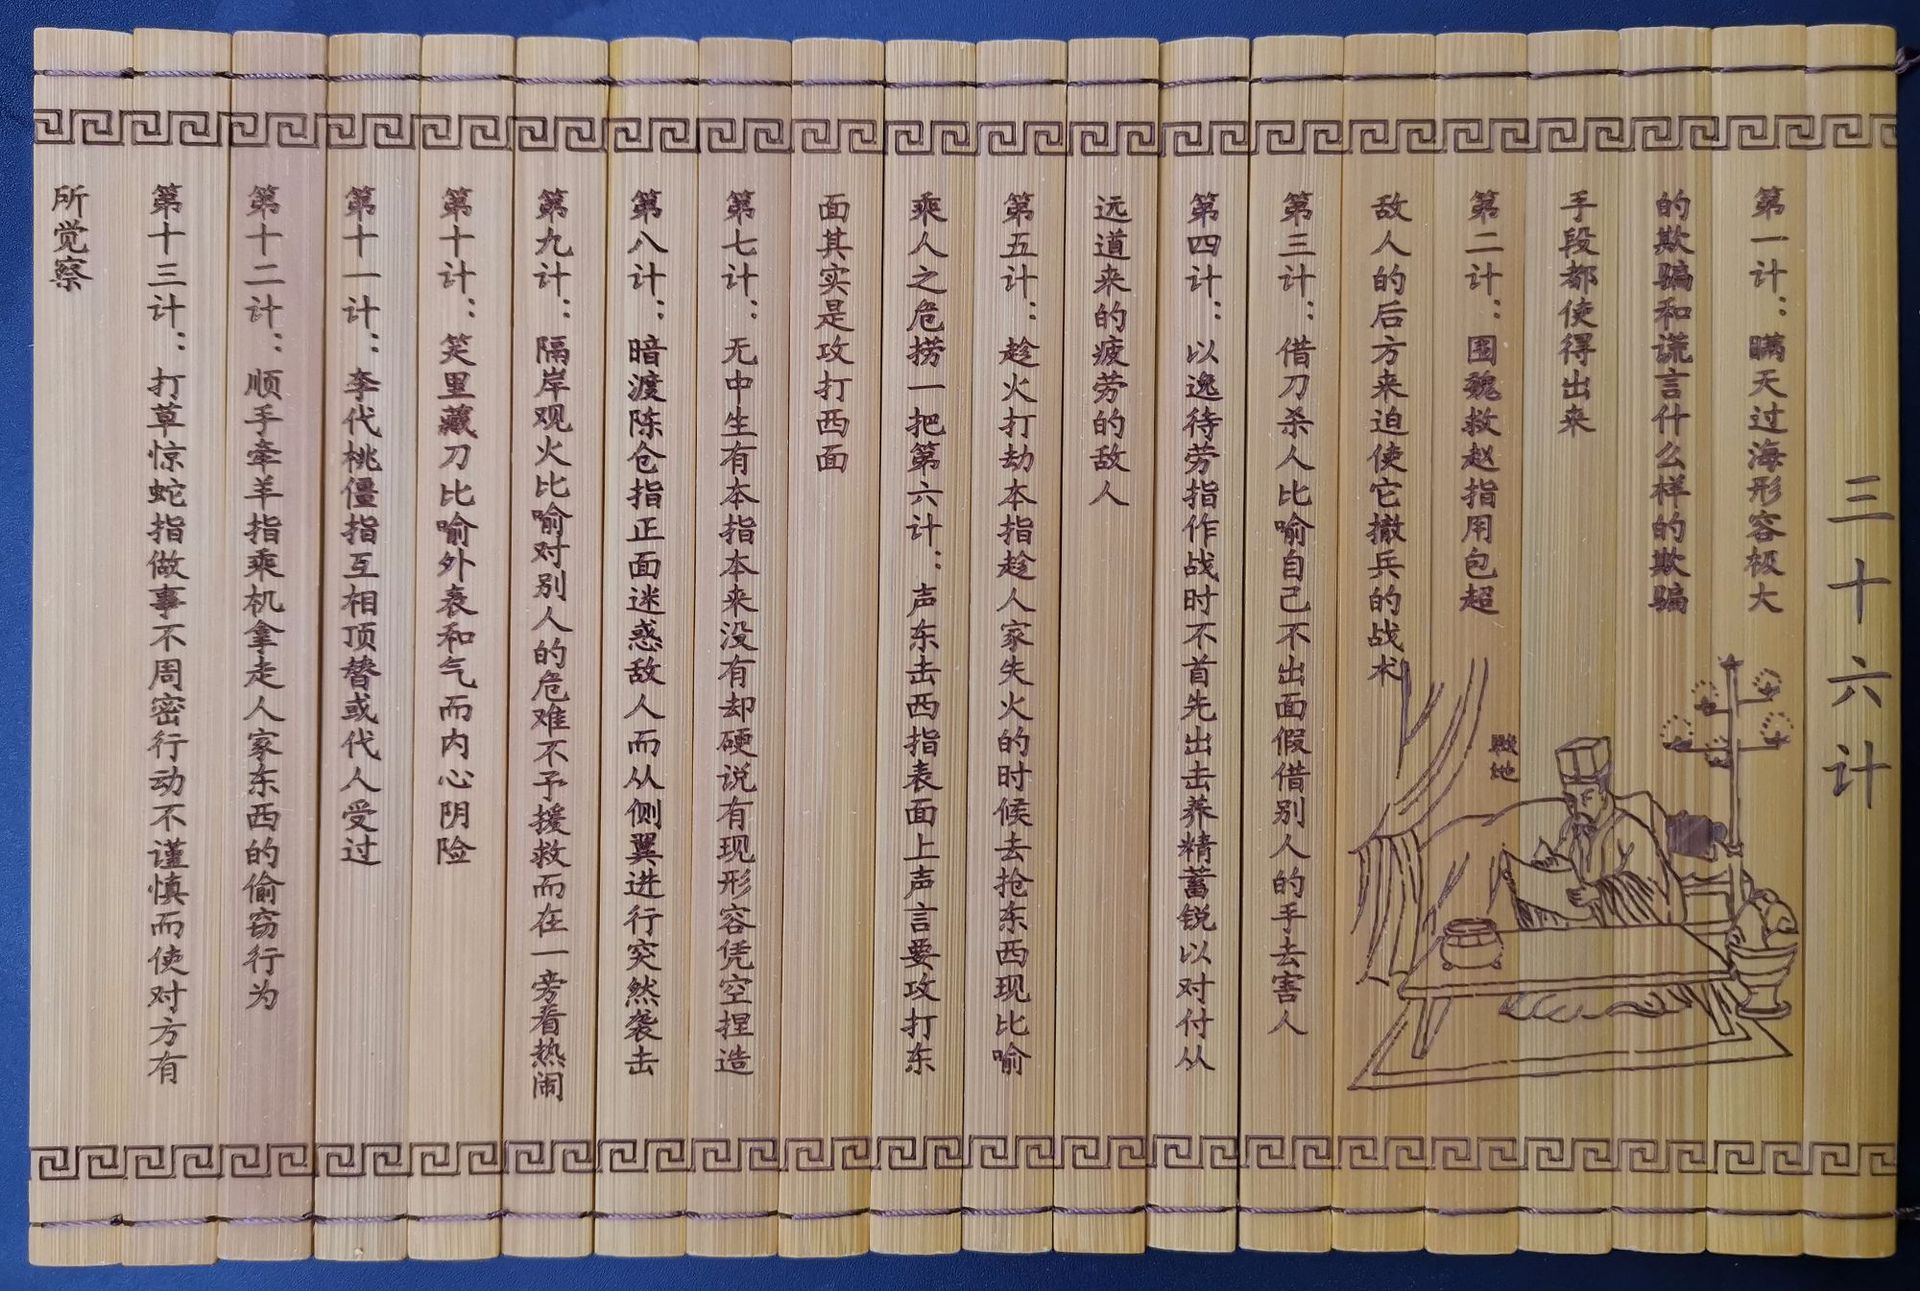 三十六计
第一计：瞒天过海形容极大
的欺骗和谎言什么样的欺骗
手段都使得出来
第二计：围魏救赵指用包超
敌人的后方来迫使它撤兵的战术
第三计：借刀杀人比喻自己不出面假借别人的手去害人
第四计：以逸待劳指作战时不首先出击养精蓄锐以对付从
远道来的疲劳的敌人
第五计：趁火打劫本指趁人家失火的时候去抢东西现比喻
乘人之危捞一把第六计：声东击西指表面上声言要攻打东
面其实是攻打西面
第七计：无中生有本指本来没有却硬说有现形容凭空捏造
第八计：暗渡陈仓指正面迷惑敌人而从侧翼进行突然袭击
第九计：隔岸观火比喻对别人的危难不予援救而在一旁看热闹
第十计：笑里藏刀比喻外表和气而内心阴险
第十一计：李代桃僵指互相顶替或代人受过
第十二计：顺手牵羊指乘机拿走人家东西的偷窃行为
第十三计：打草惊蛇指做事不周密行动不谨慎而使对方有
所觉察